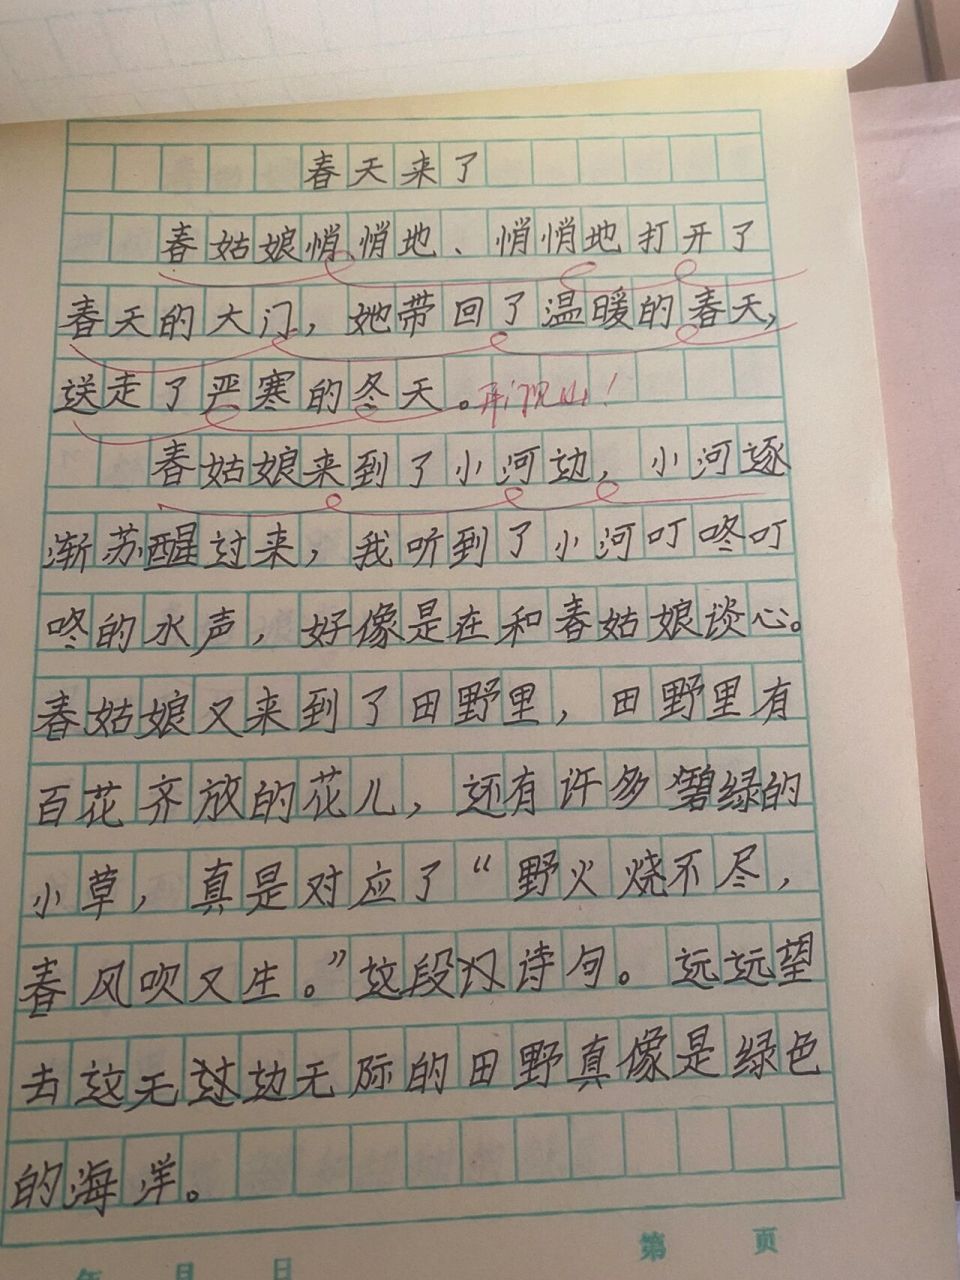 春天来了
春姑娘悄悄地、悄悄地打开了
春天的大门，她带回了温暖的春天，
送走了严寒的冬天。
春姑娘来到了小河边，小河逐
渐苏醒过来，我听到了小河叮咚叮
咚的水声，好像是在和春姑娘谈心。
春姑娘又来到了田野里，田野里有
百花齐放的花儿，还有许多碧绿的
小草，真是对应了“野火烧不尽，
春风吹又生。”这段诗句。远远望
去这无边无际的田野真像是绿色
的海洋。
年 月 日
第 页